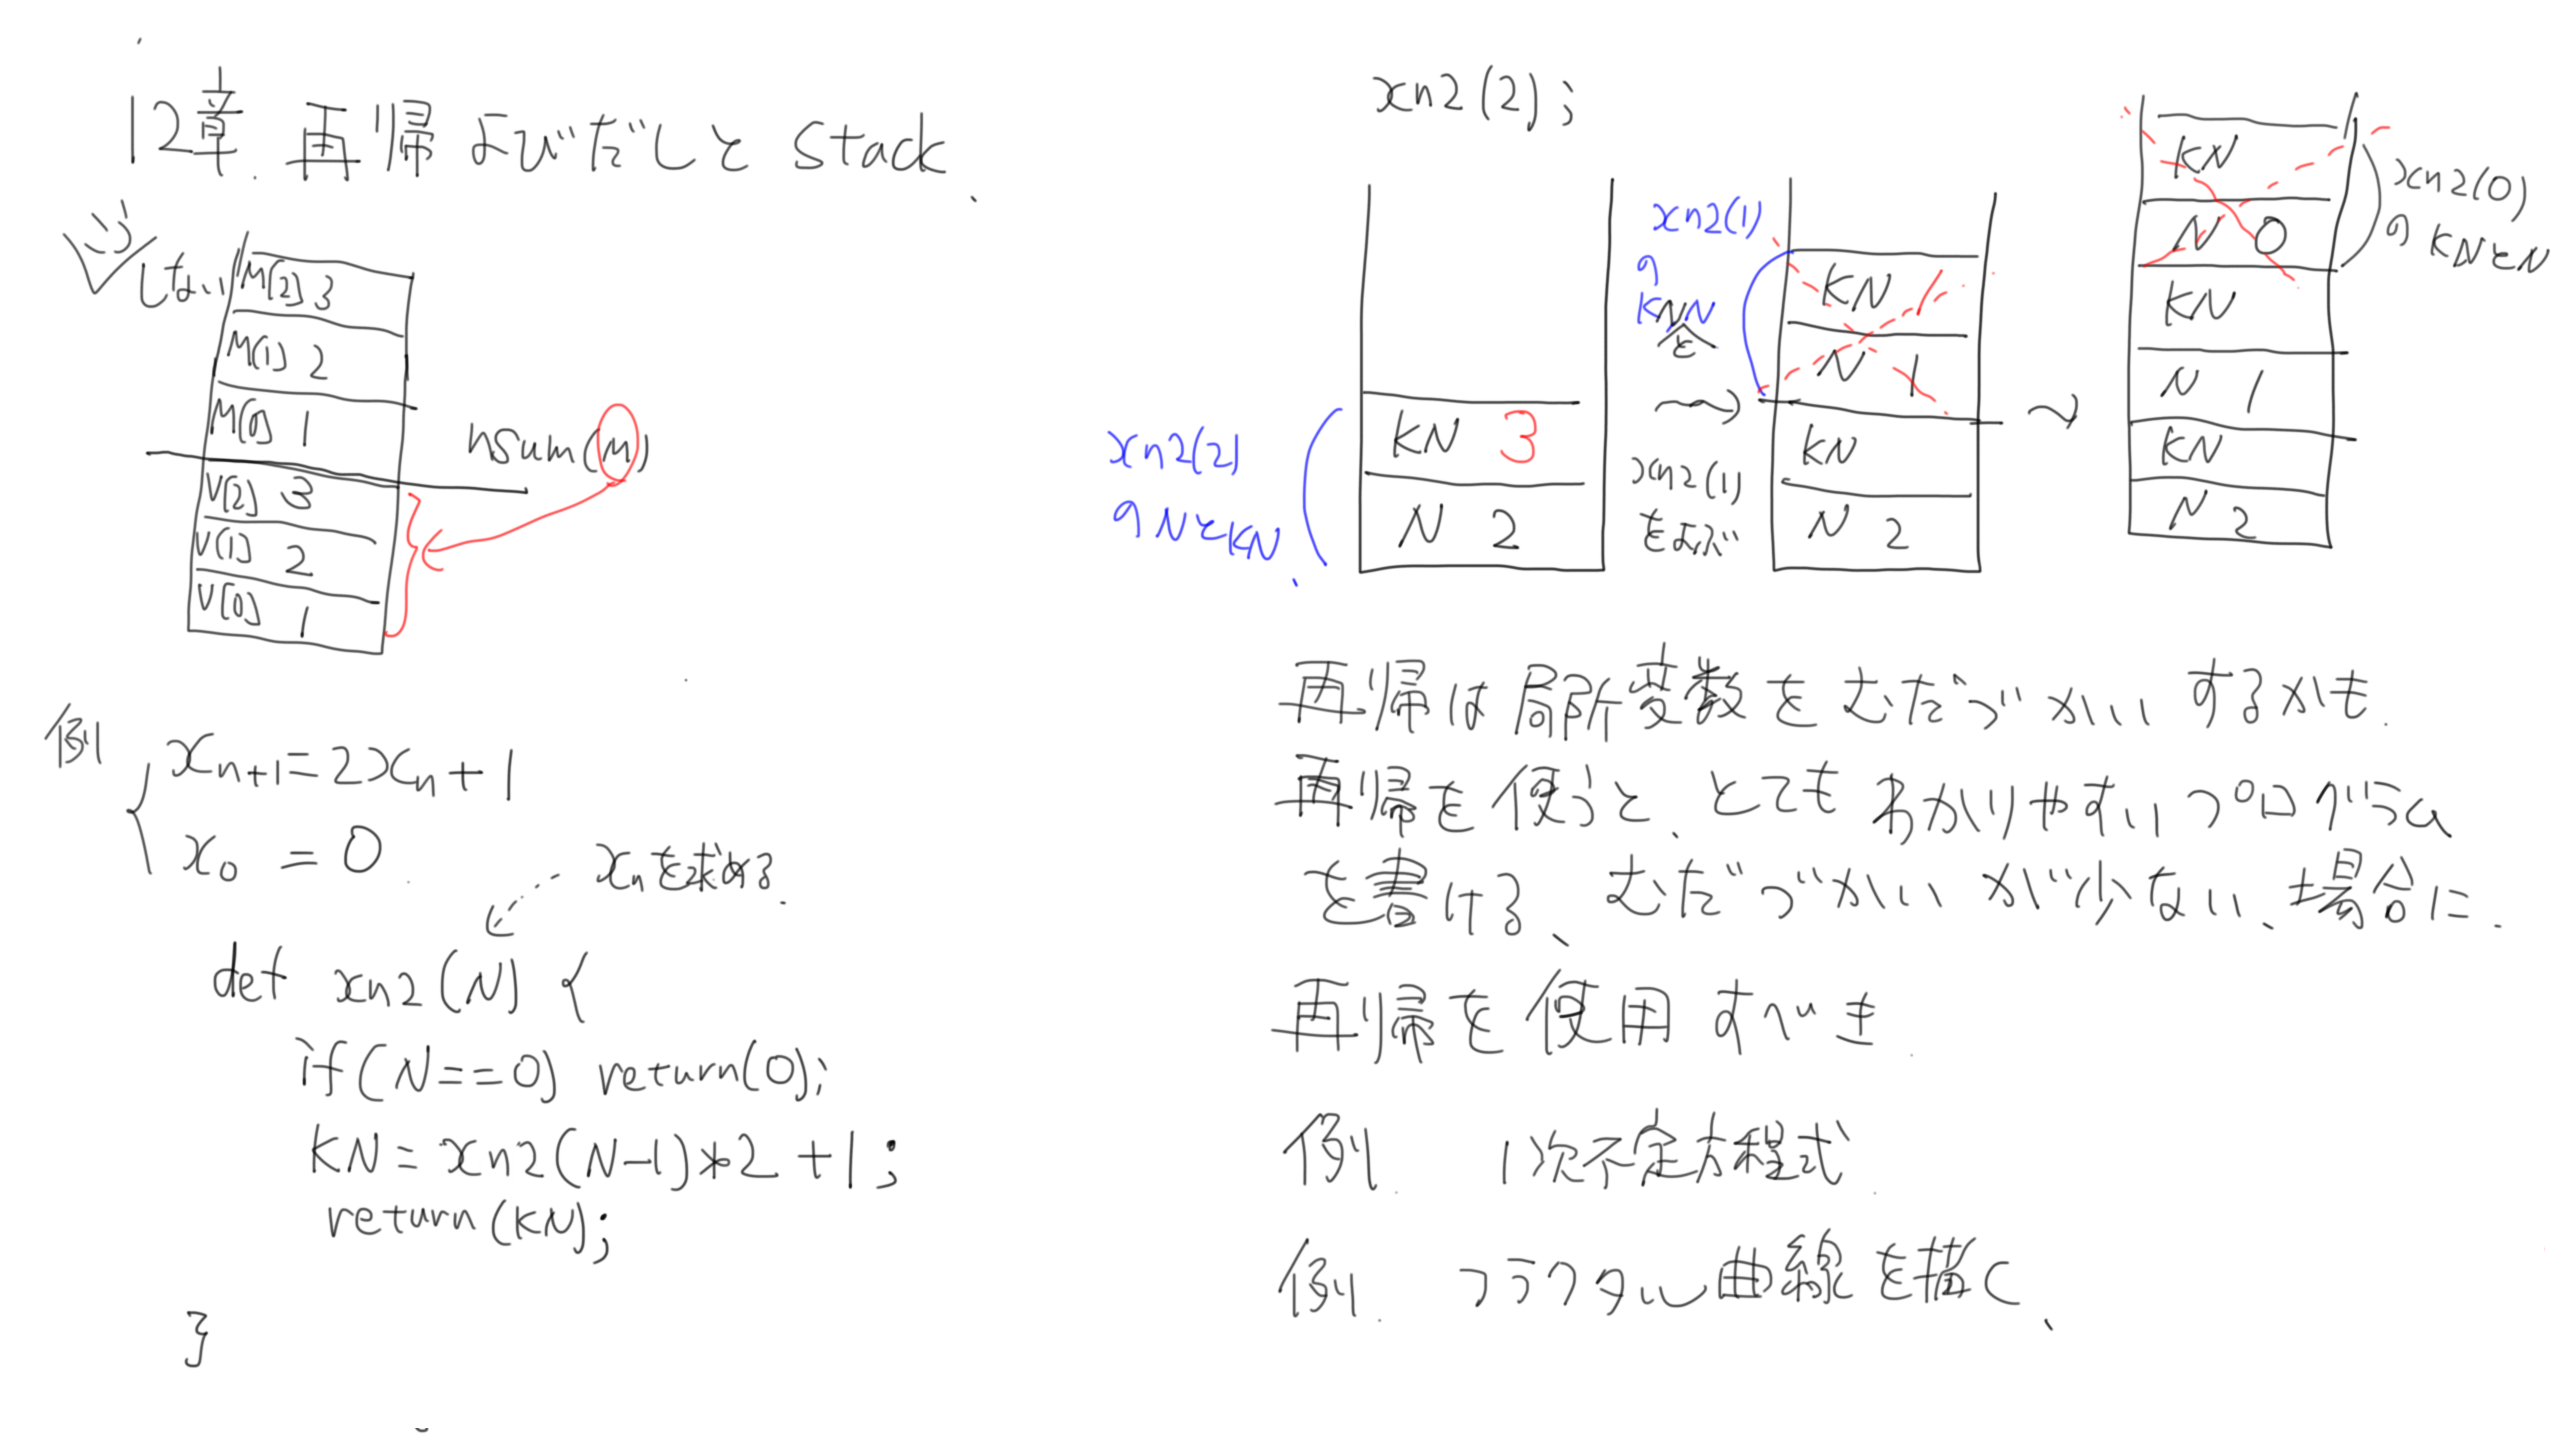 12章. 再帰よびだしと stack.
しない
M[2] 3
M[1] 2
M[0] 1
nsum(M)
V[2] 3
V[1] 2
V[0] 1
例 xn+1=2xn+1
x0 = 0
xnを求める.
def xn2(N) {
if(N==0) return(0);
KN=xn2(N-1)*2+1;
return(KN);
}
xn2(2);
xn2(2)
のNとKN.
KN 3
N 2
xn2(1)
の
と
xn2(1)
をよぶ
KN 1
N 1
KN
N 2
KN
N 0
KN
N 1
KN
N 2
xn2(0)
の KNとN
再帰は局所変数をむだづかいするかも.
再帰を使うと、とてもわかりやすいプログラム
を書ける、むだづかいが少ない、場合に.
再帰を使用すべき.
例. 1次不定方程式.
例. フラクタル曲線を描く、